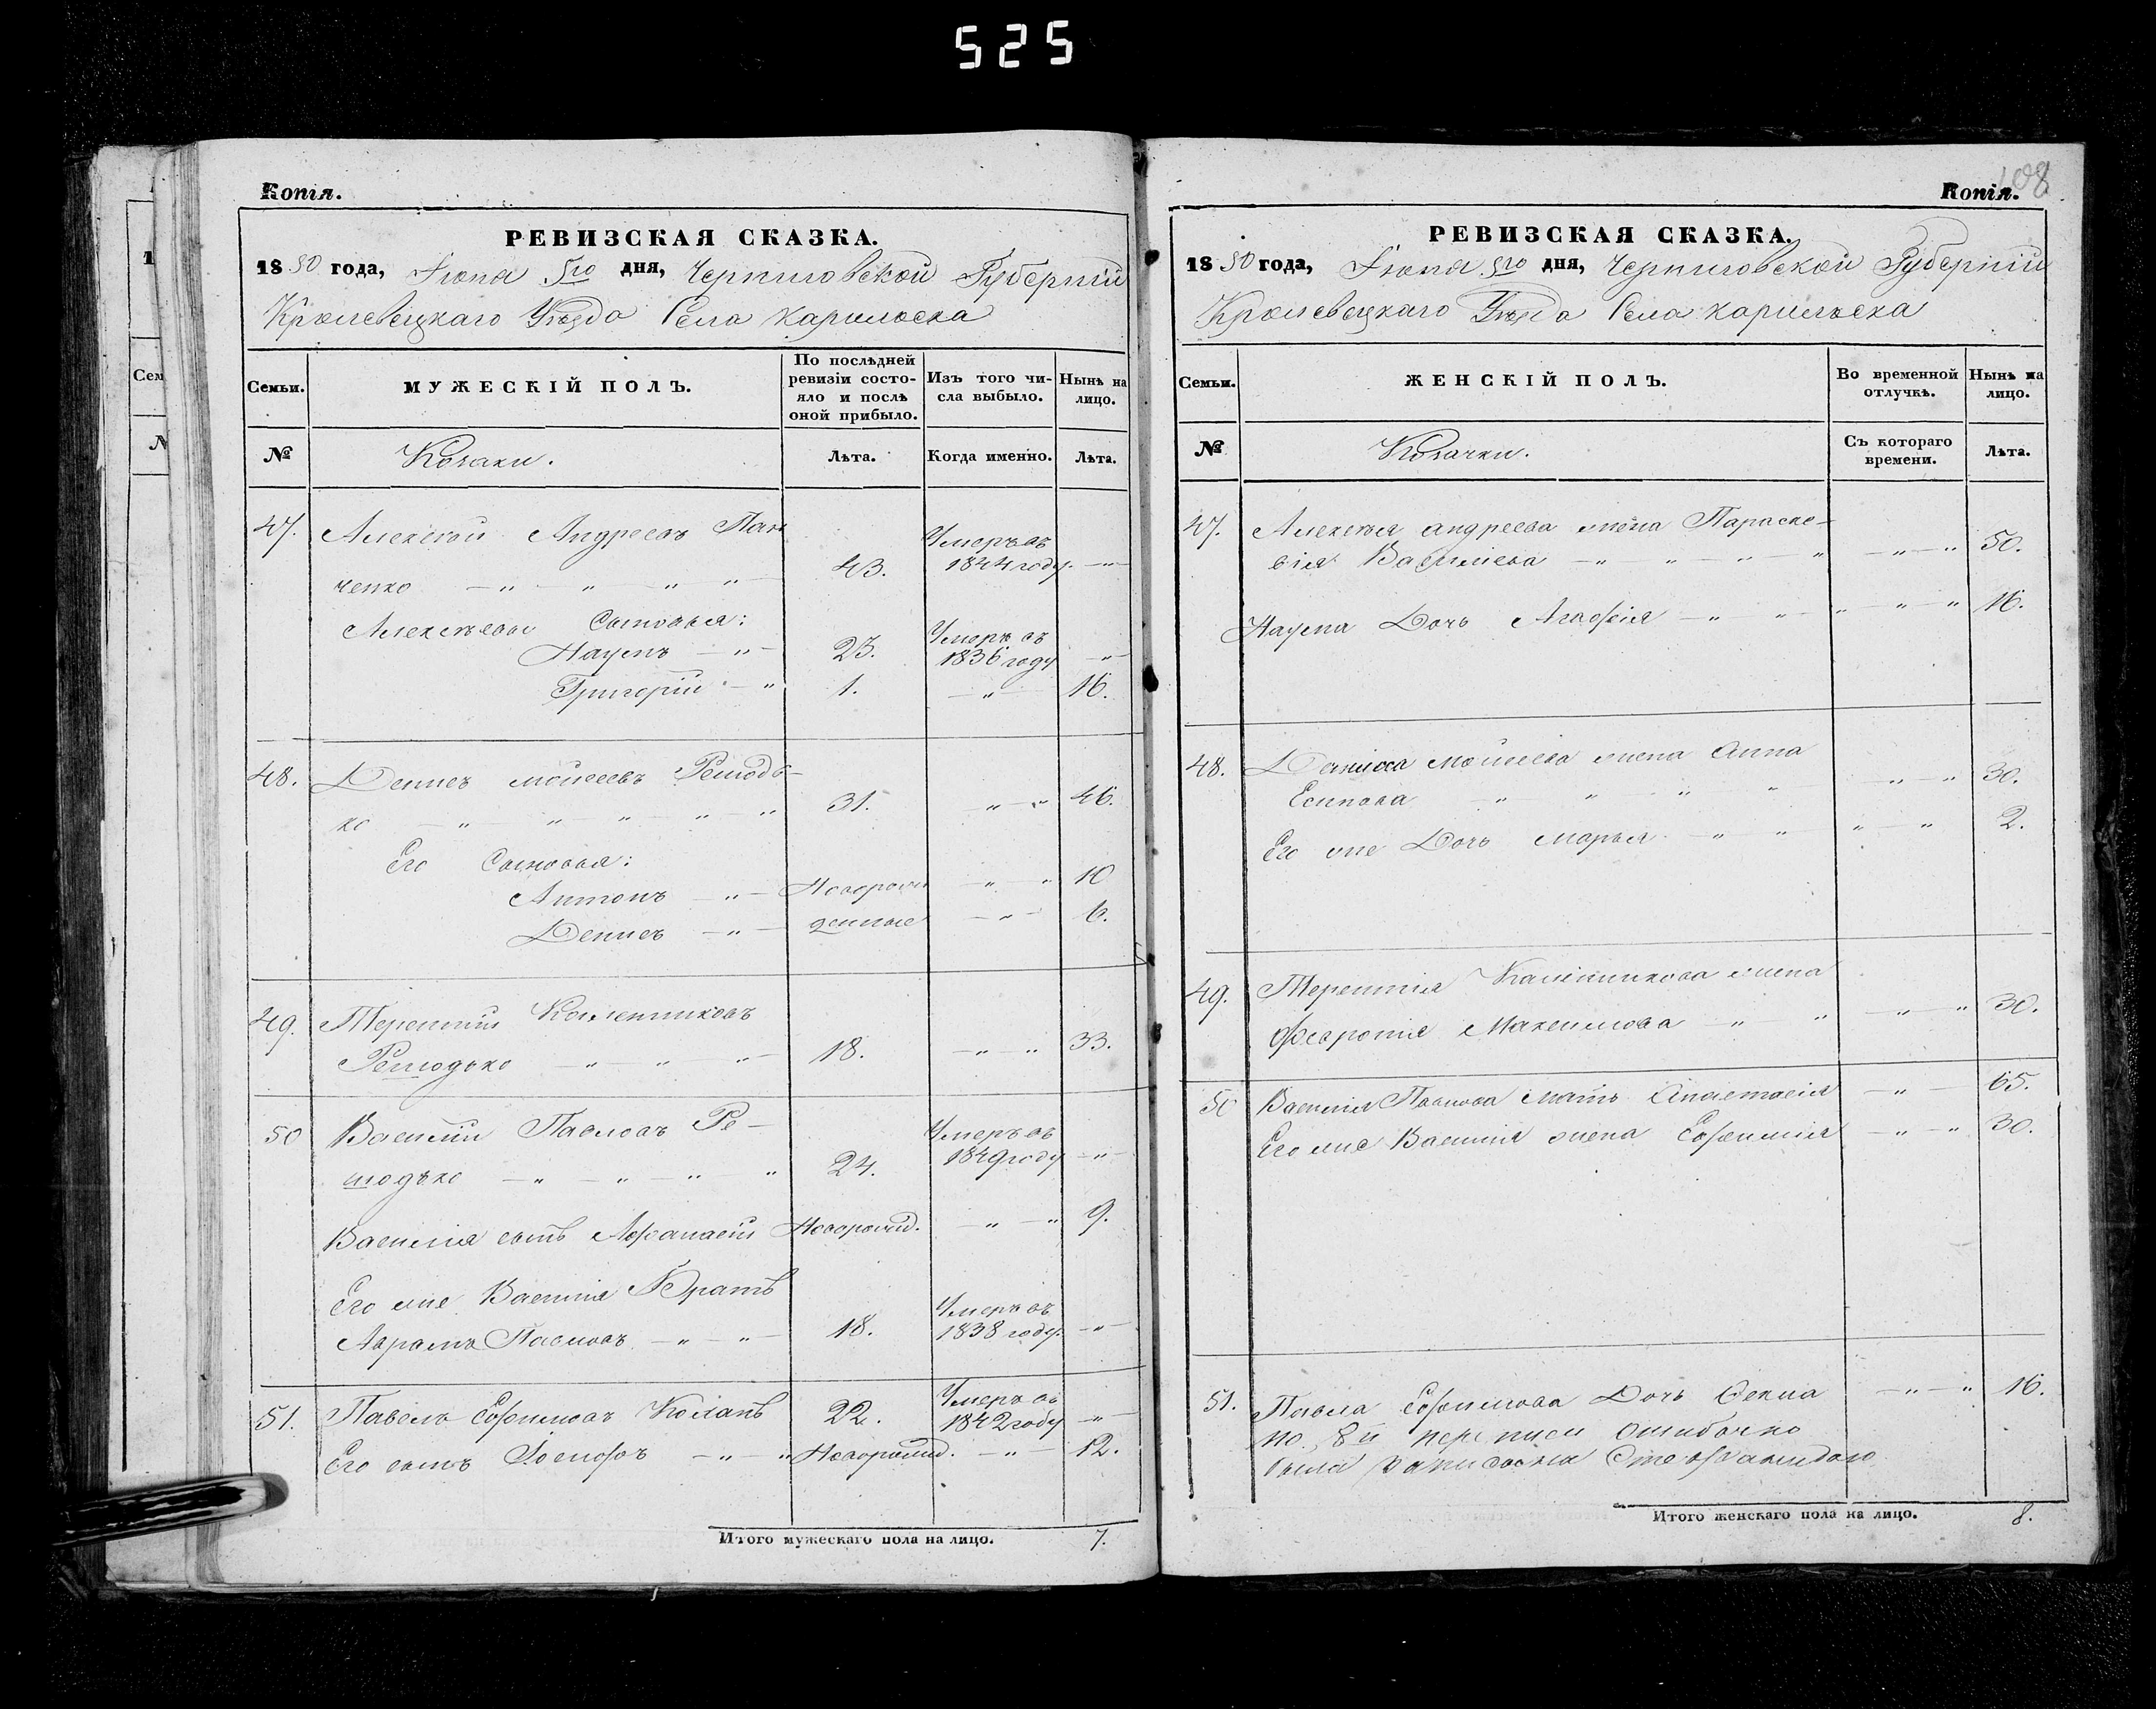 525
Копія.
РЕВИЗСКАЯ СКАЗКА.
1850 года, Іюня 5го дня, Черниговской Губерніи
Кролевецкаго Уѣзда Села Карильска
Семьи.
МУЖЕСКІЙ ПОЛЪ.
По послѣдней ревизіи состояло и послѣ оной прибыло.
Изъ того числа выбыло.
Нынѣ на лицо.
№
Козаки.
Лѣта.
Когда именно.
Лѣта.
47. Алексѣй Андреевъ Пан
ченко 43. Умеръ въ 1844 году.
Алексѣевы Сыновья:
Наумъ 23. Умеръ въ 1836 году
Григорій 1. 16.
48. Денис Моисеевъ Решодь-
ко 31. 46.
Его Сыновья:
Антонъ Новорож 10
Денис денные 6.
49. Терентій Калениковъ
Решодько 18. 33.
50 Василій Павловъ Ре-
шодько 24. Умеръ въ 1849 году
Василія сынъ Афанасій Новорожд. 9.
Его же Василія Братъ
Аврамъ Павловъ 18. Умеръ въ 1838 году.
51. Павелъ Ефимовъ 22. Умеръ въ 1842 году
Его сынъ Новорожд. 12.
Итого мужескаго пола на лицо. 7.
108
Копія.
РЕВИЗСКАЯ СКАЗКА.
1850 года, Іюня 5го дня, Черниговской Губерніи
Кролевецкаго Уѣзда Села Карильска
Семьи.
ЖЕНСКІЙ ПОЛЪ.
Во временной отлучкѣ.
Нынѣ на лицо.
№
Козачки.
Съ котораго времени.
Лѣта.
47. Алексѣя Андреева жена Параске-
вія Василіева 50.
Наума Дочь Агафія 16.
48. Дениса Моисеева жена Анна
Есипова 30.
Его же Дочь Марья 2.
49. Терентія Каленикова жена
Феврония Максимова 30.
50 Василія Павлова мать Анастасія 65.
Его же Василія жена Ефимія 30.
51. Павла Ефимова Дочь Фекла 16.
по 8й переписи ошибочно
была записана
Итого женскаго пола на лицо. 8.